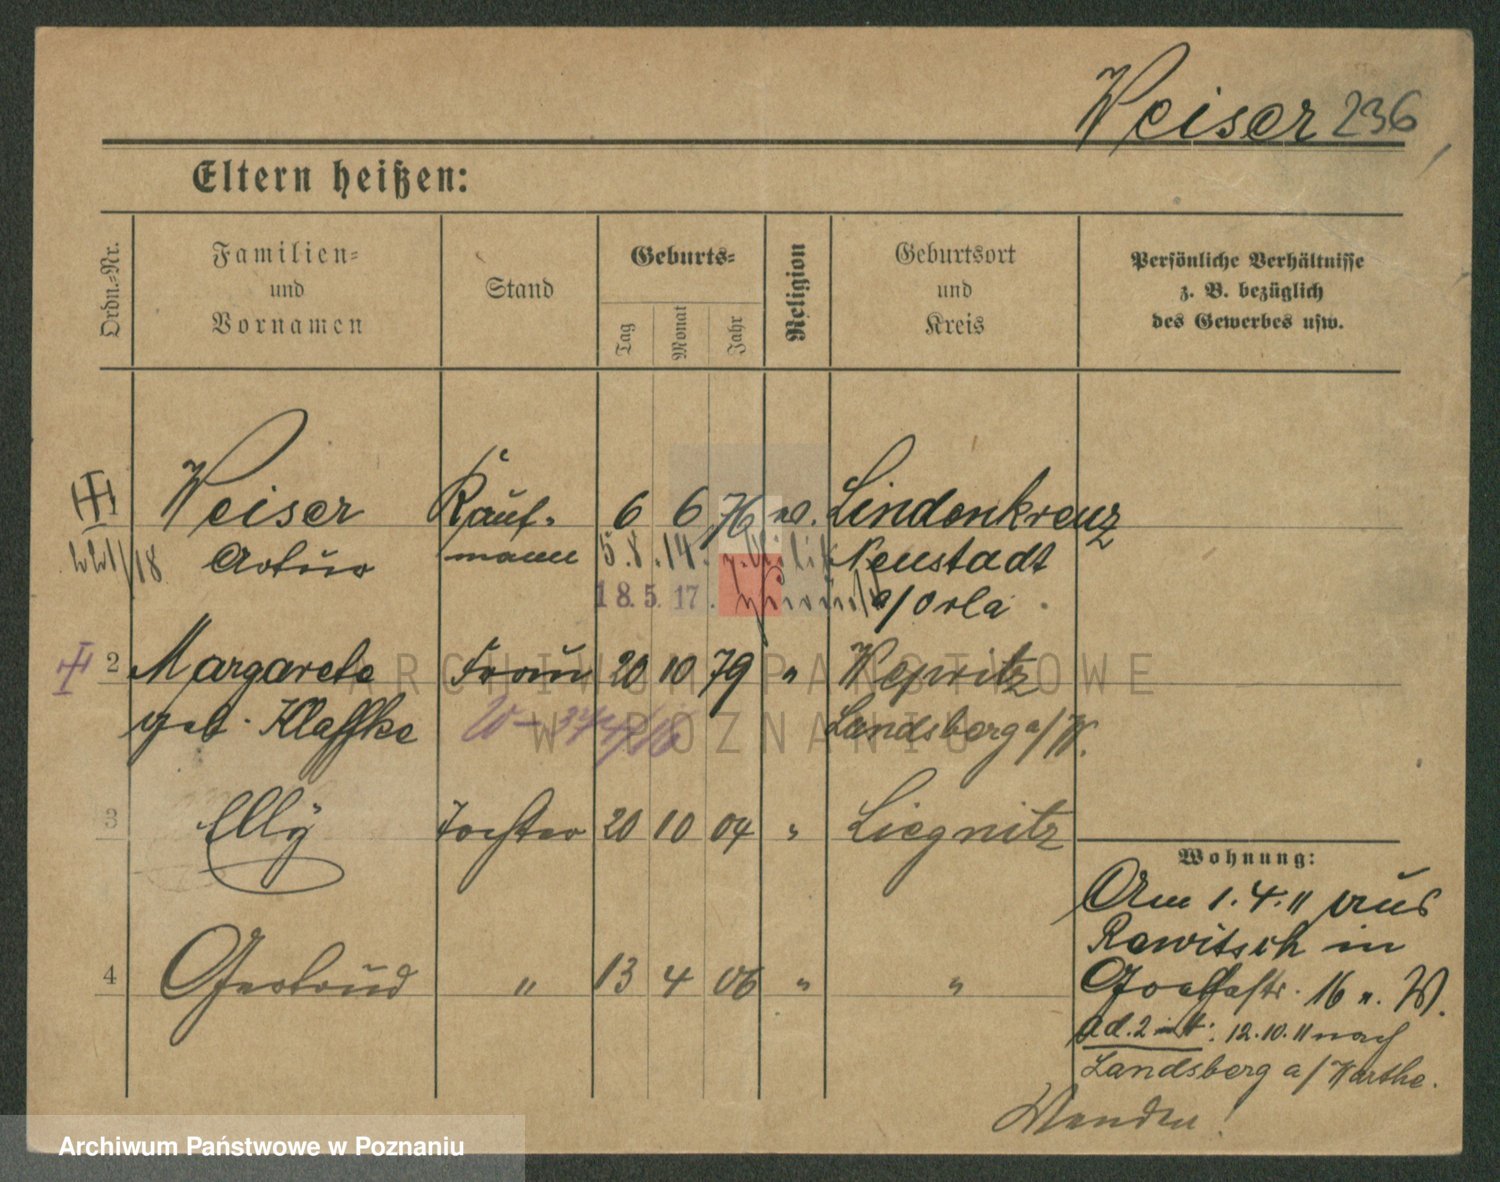 Weiser 236
Eltern heißen:
Ordn.=Nr.
Familien=
und
Vornamen
Stand
Geburts=
Tag
Monat
Jahr
Religion
Geburtsort
und
Kreis
Persönliche Verhältnisse
z. B. bezüglich
des Gewerbes usw.
Weiser Kauf- 6 6 76 Lindenkreuz
Artur mann 5.8.14. Neustadt
18.5.17. a/Orla
2 Margarete Frau 20 10 79 " Wepritz
geb. Klaffke Landsberg a/W.
3 Elly Tochter 20 10 04 " Liegnitz
4 Gertrud " 13 4 06 " "
Wohnung:
Am 1.4.11 aus
Rawitsch in
16 n. W.
ad. 2 12.10.11 nach
Landsberg a/Warthe.
Wenden!
ARCHIWUM PAŃSTWOWE
W POZNANIU
Archiwum Państwowe w Poznaniu